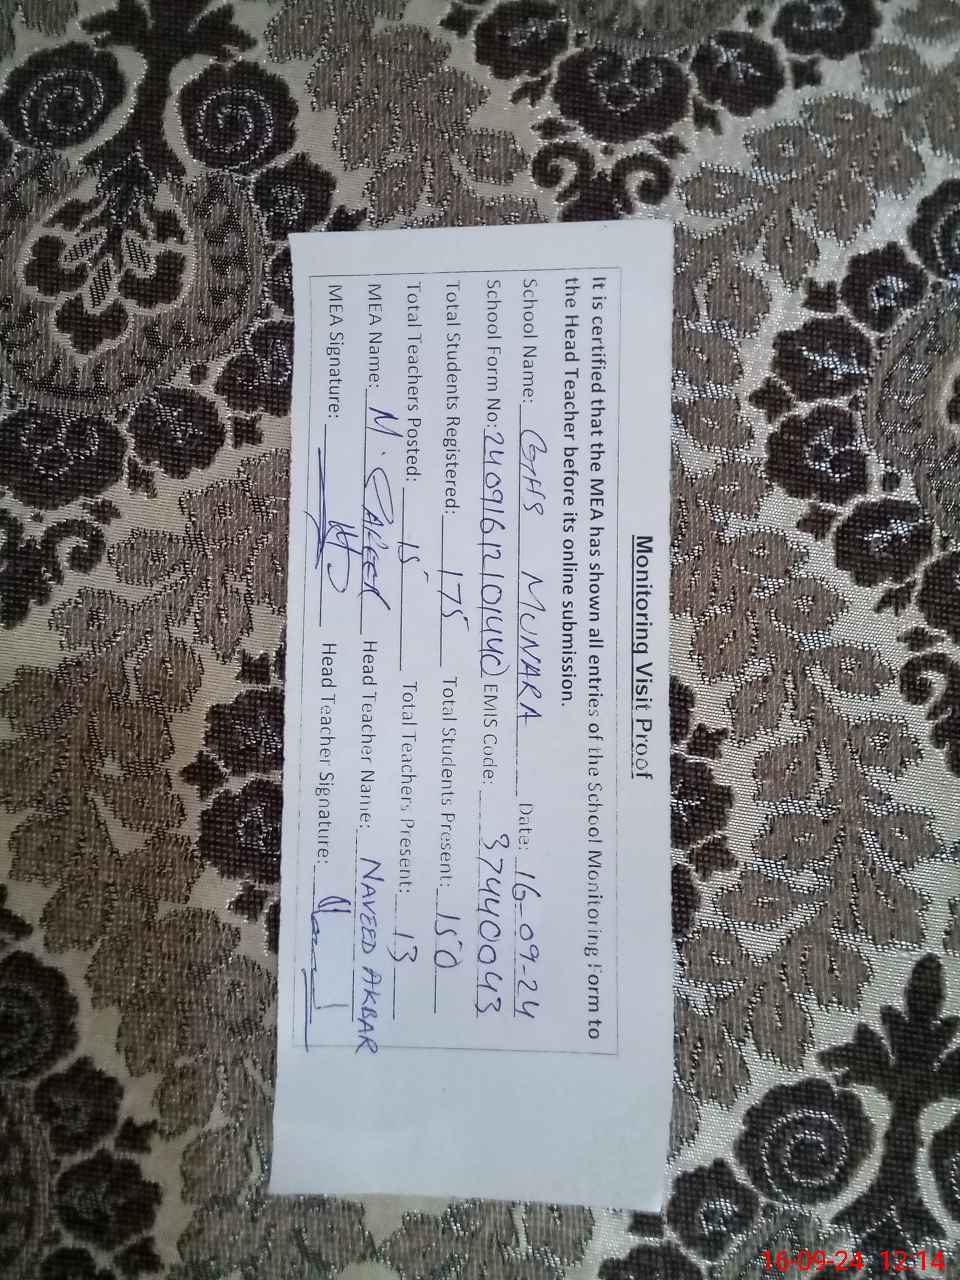 Monitoring Visit Proof
It is certified that the MEA has shown all entries of the School Monitoring Form to
the Head Teacher before its online submission.
School Name: GHS MUNARA Date: 16-09-24
School Form No: EMIS Code: 37440043
Total Students Registered: 175 Total Students Present: 150
Total Teachers Posted: 15 Total Teachers Present: 13
MEA Name: M. Head Teacher Name: NAVEED AKBAR
MEA Signature: Head Teacher Signature:
16-09-24 12:14